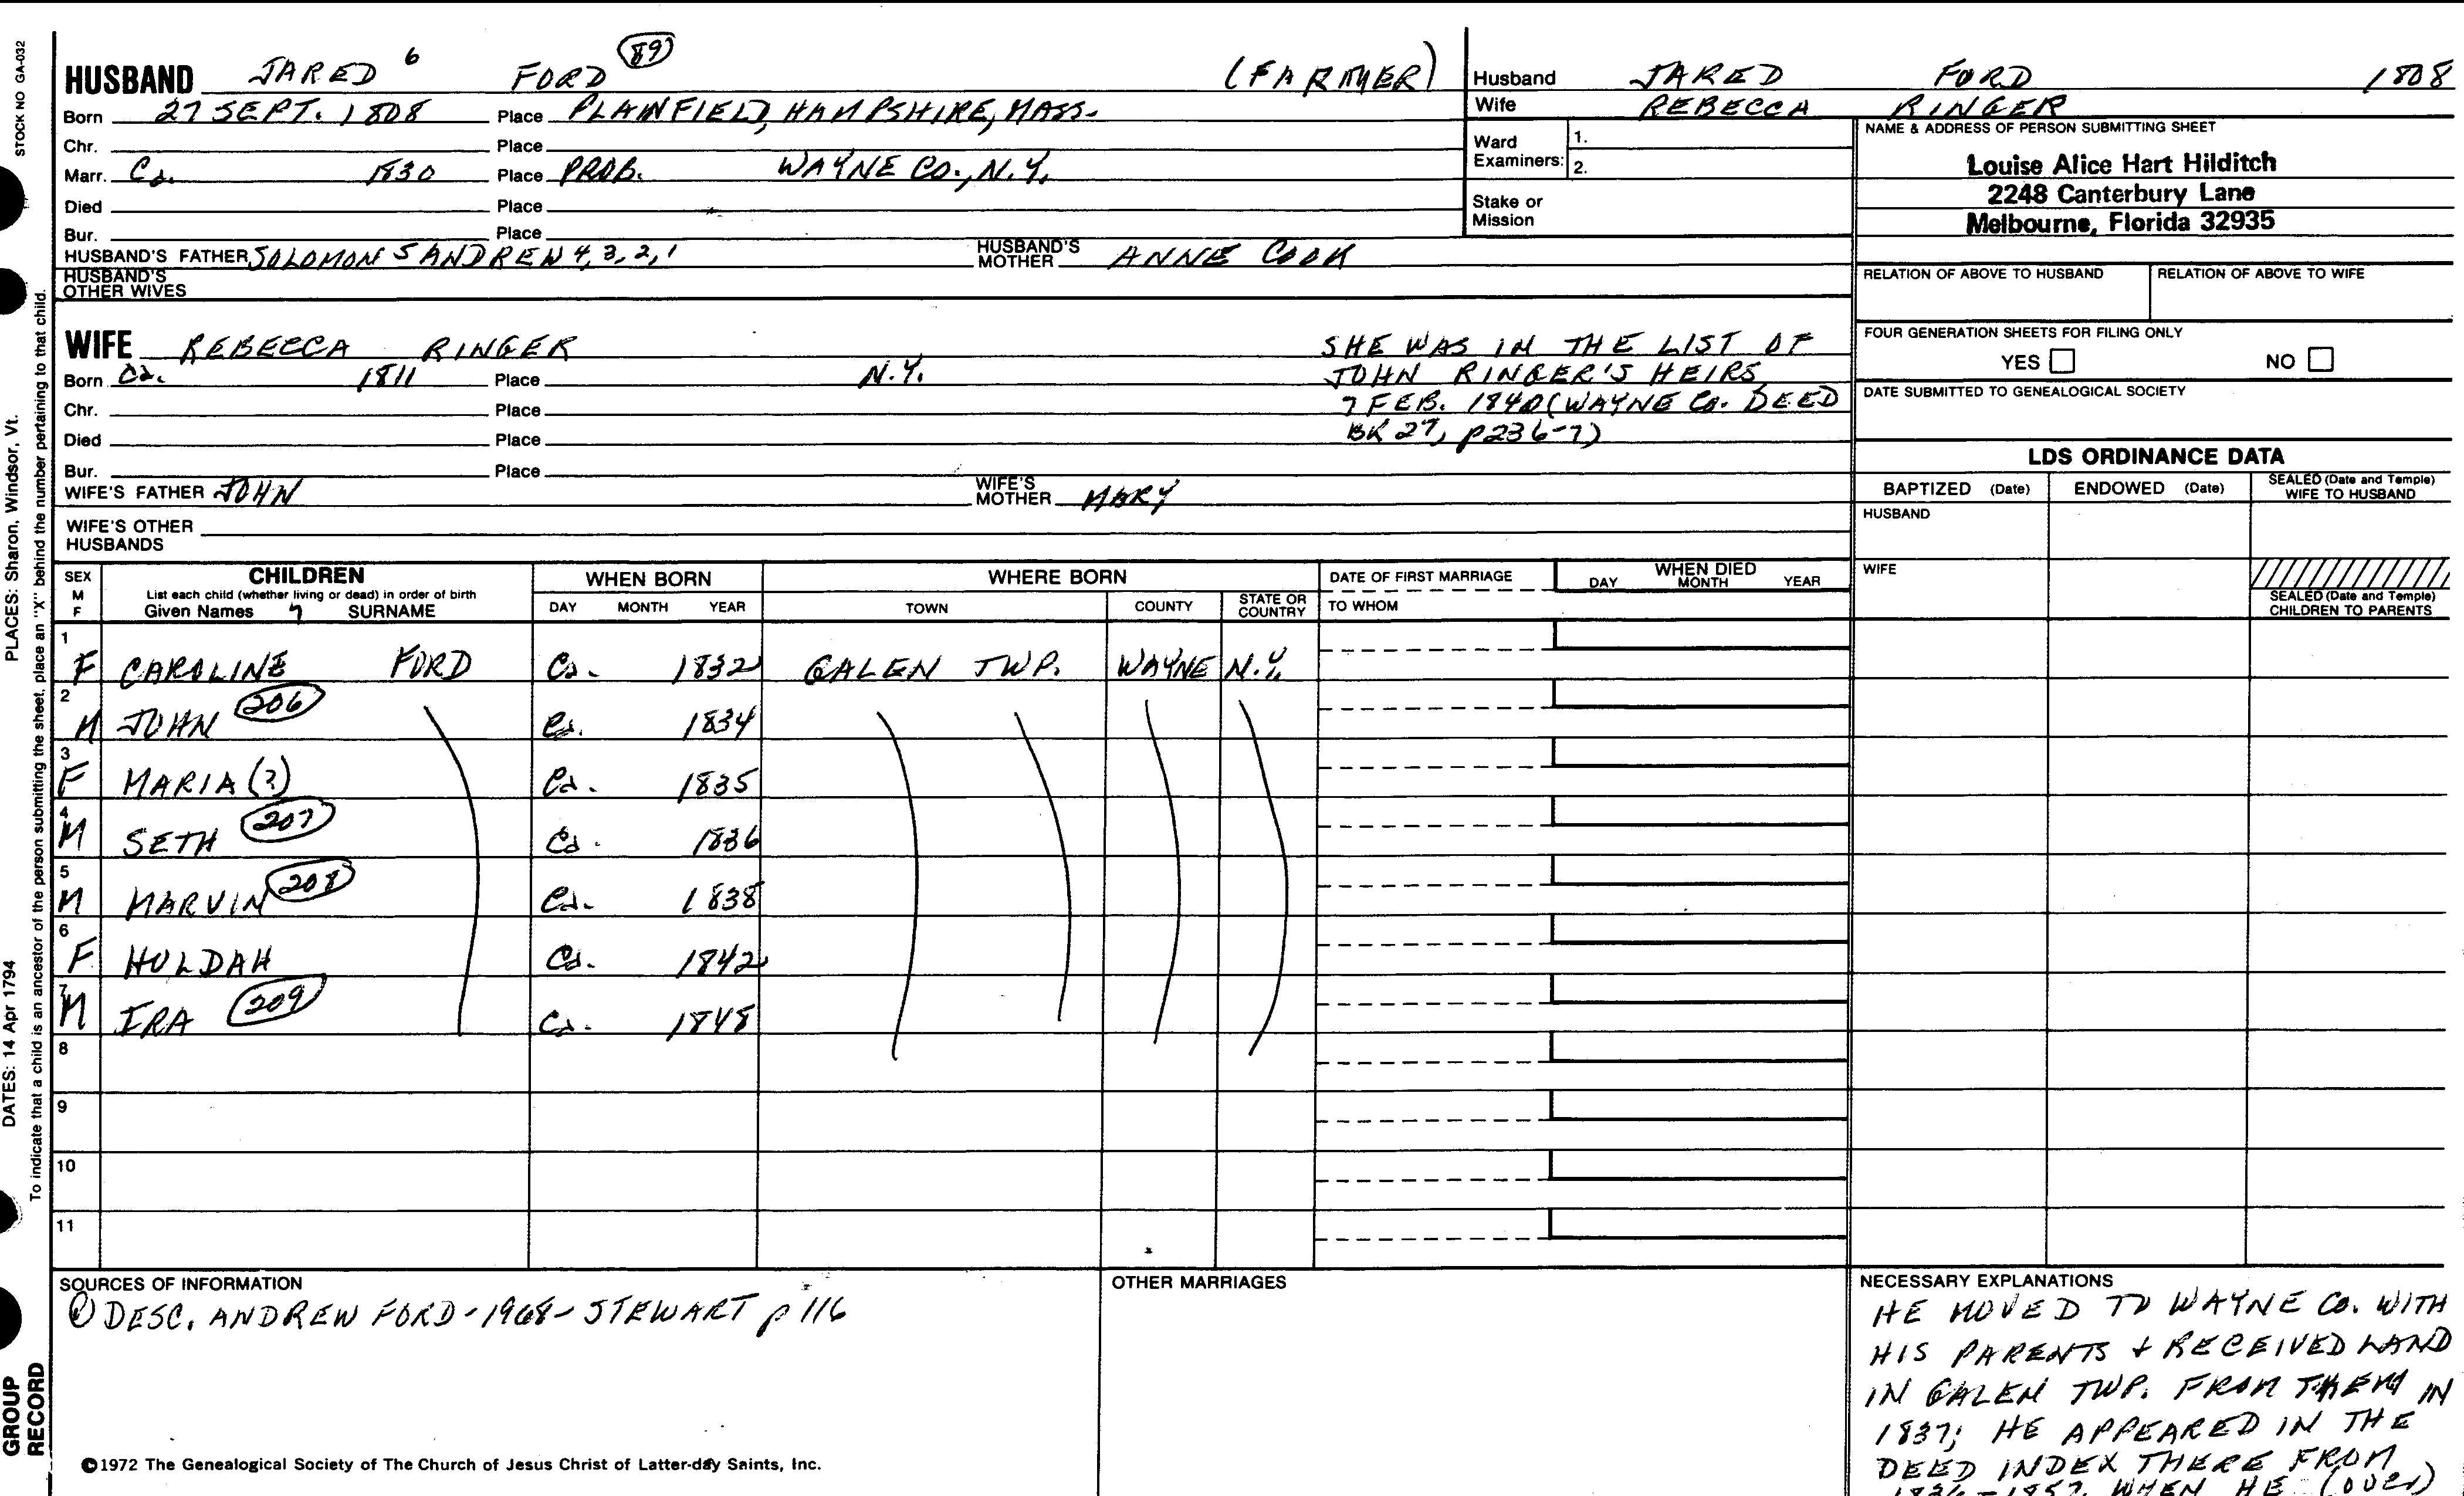 STOCK NO GA-032
PLACES: Sharon, Windsor, Vt.
DATES: 14 Apr 1794
To indicate that a child is an ancestor of the person submitting the sheet, place an "X" behind the number pertaining to that child.
GROUP
RECORD
HUSBAND JARED 6 FORD 89 (FARMER)
Born 27 SEPT. 1808 Place PLAINFIELD, HAMPSHIRE, MASS.
Chr. Place
Marr. Ca. 1830 Place PROB. WAYNE CO., N.Y.
Died Place
Bur. Place
HUSBAND'S FATHER SOLOMON 5 ANDREW 4, 3, 2, 1 HUSBAND'S MOTHER ANNE COOK
HUSBAND'S
OTHER WIVES
WIFE REBECCA RINGER
Born Ca. 1811 Place N.Y.
Chr. Place
Died Place
Bur. Place
SHE WAS IN THE LIST OF
JOHN RINGER'S HEIRS
7 FEB. 1840 (WAYNE CO. DEED
BK 27, p236-7)
WIFE'S FATHER JOHN WIFE'S MOTHER MARY
WIFE'S OTHER
HUSBANDS
Husband JARED FORD 1808
Wife REBECCA RINGER
Ward
Examiners:
1.
2.
Stake or
Mission
NAME & ADDRESS OF PERSON SUBMITTING SHEET
Louise Alice Hart Hilditch
2248 Canterbury Lane
Melbourne, Florida 32935
RELATION OF ABOVE TO HUSBAND RELATION OF ABOVE TO WIFE
FOUR GENERATION SHEETS FOR FILING ONLY
YES NO
DATE SUBMITTED TO GENEALOGICAL SOCIETY
LDS ORDINANCE DATA
BAPTIZED (Date) ENDOWED (Date) SEALED (Date and Temple) WIFE TO HUSBAND
HUSBAND
WIFE
SEALED (Date and Temple)
CHILDREN TO PARENTS
SEX
M
F
CHILDREN
List each child (whether living or dead) in order of birth
Given Names 7 SURNAME
WHEN BORN
DAY MONTH YEAR
WHERE BORN
TOWN COUNTY STATE OR COUNTRY
DATE OF FIRST MARRIAGE
TO WHOM
WHEN DIED
DAY MONTH YEAR
1 F CAROLINE FORD Ca. 1832 GALEN TWP. WAYNE N.Y.
2 M JOHN 206 Ca. 1834
3 F MARIA (?) Ca. 1835
4 M SETH 207 Ca. 1836
5 M MARVIN 208 Ca. 1838
6 F HULDAH Ca. 1842
7 M IRA 209 Ca. 1848
8
9
10
11
SOURCES OF INFORMATION
① DESC. ANDREW FORD - 1968 - STEWART p 116
OTHER MARRIAGES
NECESSARY EXPLANATIONS
HE MOVED TO WAYNE CO. WITH
HIS PARENTS & RECEIVED LAND
IN GALEN TWP. FROM THEM IN
1837; HE APPEARED IN THE
DEED INDEX THERE FROM
WHEN HE (over)
©1972 The Genealogical Society of The Church of Jesus Christ of Latter-day Saints, Inc.